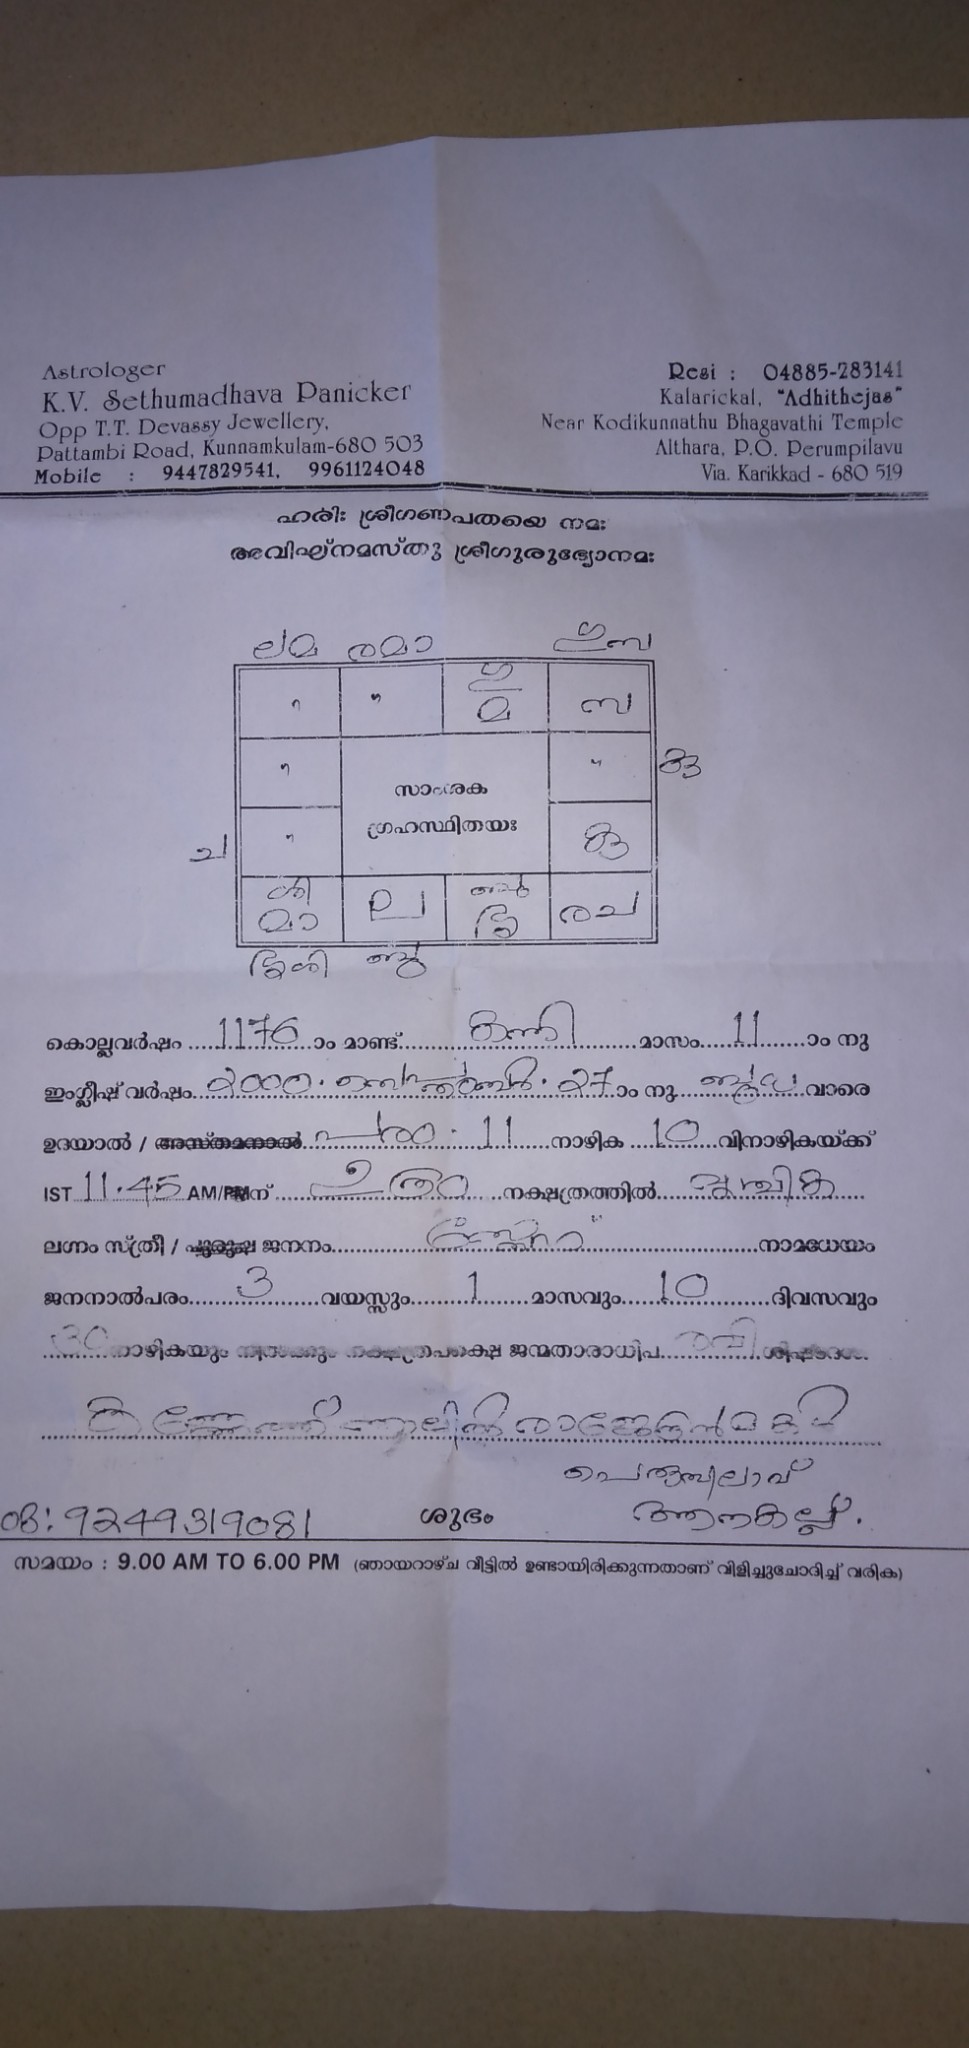 Astrologer
K.V. Sethumadhava Panicker
Opp T.T. Devassy Jewellery,
Pattambi Road, Kunnamkulam-680 503
Mobile : 9447829541, 9961124048
Resi : 04885-283141
Kalarickal, "Adhithejas"
Near Kodikunnathu Bhagavathi Temple
Althara, P.O. Perumpilavu
Via. Karikkad - 680 519
ഹരിഃ ശ്രീഗണപതയെ നമഃ
അവിഘ്നമസ്തു ശ്രീഗുരുഭ്യോനമഃ
ലമ രമാ ഗുസ
ഗു
മ സ
സാംശക കു
ഗ്രഹസ്ഥിതയഃ
ച കു
ശി
മാ ല രച
കൊല്ലവർഷം 1176 ാം മാണ്ട് കന്നി മാസം 11 ാം നു
ഇംഗ്ലീഷ് വർഷം 2000 സെപ്തംബർ 27 ാം നു ബുധ വാരെ
ഉദയാൽ / അസ്തമനാൽ പരം 11 നാഴിക 10 വിനാഴികയ്ക്ക്
IST 11.45 AM/PMന് ഉത്രം നക്ഷത്രത്തിൽ വൃശ്ചിക
ലഗ്നം സ്ത്രീ / പുരുഷ ജനനം നാമധേയം
ജനനാൽപരം 3 വയസ്സും 1 മാസവും 10 ദിവസവും
30 നാഴികയും നക്ഷത്രപക്ഷെ ജന്മതാരാധിപ രവി ശിഷ്ടദശ
മകൾ
പെരുമ്പിലാവ്
ആനകല്ല്.
ശുഭം
09249319081
സമയം : 9.00 AM TO 6.00 PM (ഞായറാഴ്ച വീട്ടിൽ ഉണ്ടായിരിക്കുന്നതാണ് വിളിച്ചുചോദിച്ച് വരിക)